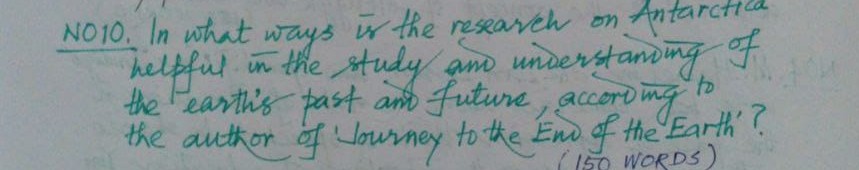 NO10. In what ways is the research on Antarctica
helpful in the study and understanding of
the earth's past and future, according to
the author of 'Journey to the End of the Earth'?
(150 WORDS)